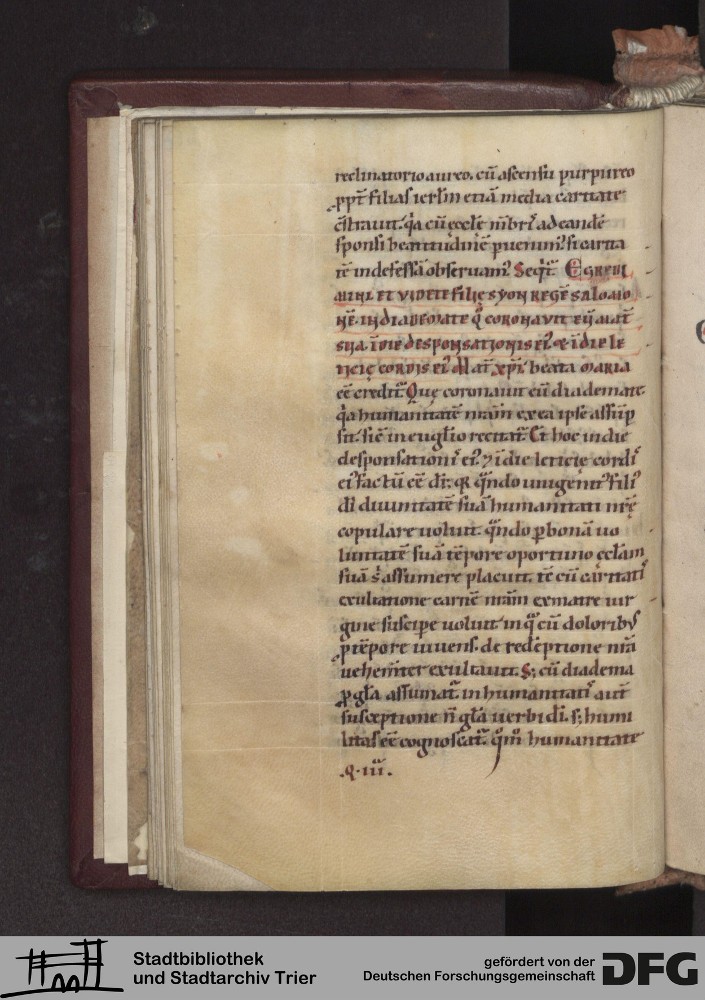 reclinatorio aureo. cū ascensu purpureo
ꝓpt̄ filias ierl̄m etiā media caritate
c̄strauit. q̇a cū eccl̄e m̄bris ad eandē
sponsi beatitudinē ꝑuenim᷒ si carita
tē indefessā observam᷒. Seq̇t̄. Egredi
mini et videte filie syon regē salomo
nē in diademate q̇ coronavit eū mat̄
sua ī die desponsationis ei᷒ & ī die le
ticię cordis ei᷒ Mat̄ xp̄i beata maria
eē credit᷒. Quę coronauit eū diademate.
q̇a humanitatē nr̄am ex ea ipse assūp
sit. sic̄ in euglio recitat᷒. Et hoc in die
desponsationis ei᷒ ⁊ ī die leticię cordis
ei᷒ factū eē dr̄. qꝛ q̄ndo unigenit᷒ fili᷒
dī diuinitatē suā humanitati nr̄ę
copulare uoluit. q̄ndo ꝑ bonā uo
luntatē suā tēpore oportuno eccl̄am
suā s̄ assumere placuit. tē cū caritatis
exultatione carnē nr̄am ex matre uir
gine suscipe uoluit in q̄ cū doloribꝰ
ꝓ tēpore uiuens. de redēptione nr̄a
uehem̄ter exultauit. S; cū diadema
ꝓ gl̄a assumat᷒ in humanitatis aut̄
susceptione n̄ gl̄a uerbi dī. s; humi
litas eē cognoscat᷒. qm̄ humanitate
.Q. iii.
Stadtbibliothek
und Stadtarchiv Trier
gefördert von der
Deutschen Forschungsgemeinschaft
DFG